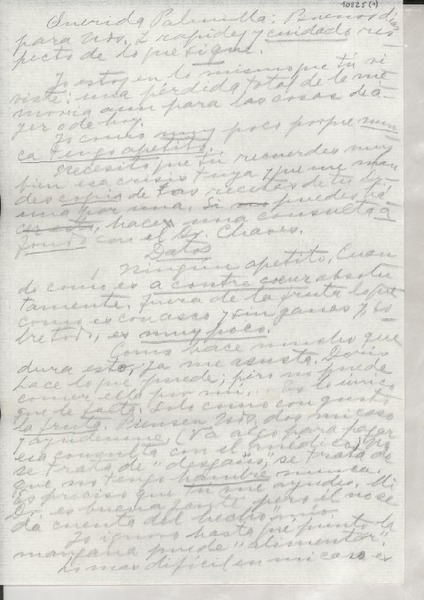 10025(1)
Querida Palmilla: Buenos días
para Uds. I rapidez y cuidado res-
pecto de lo que sigue.
Yo estoy en lo mismo que tú vi-
viste: una pérdida total de la me-
moria aun para las cosas de a-
yer o de hoy.
Yo como muy poco porque nun-
ca tengo apetito.
Necesito que tú recuerdes muy
bien esa crisis tuya y que me man-
des copia de las recetas de tu
una por una. Si no puedes
hacer una consulta a
fondo con el Dr. Chaves.
Datos
Ningún apetito. Cuan-
do como es a contre coeur absolu-
tamente. Fuera de la fruta lo que
como es con asco y sin ganas y, so-
bre todo, es muy poco.
Como hace mucho que
dura esto, ya me asusta. Doris
hace lo que puede; pero no puede
comer ella por mí. Es lo único
que le falta. Solo como con gusto
la fruta. Piensen Uds. dos mi caso
y ayúdenme. (Va algo para pagar
esa consulta con el médico.) No
se trata de "desgano", se trata de
que no tengo hambre nunca.
Es preciso que tú me ayudes. Mi
Dr. es buena gente pero él no se
da cuenta del hecho mío.
Yo ignoro hasta qué punto la
manzana puede "alimentar".
Lo mas difícil en mi caso es